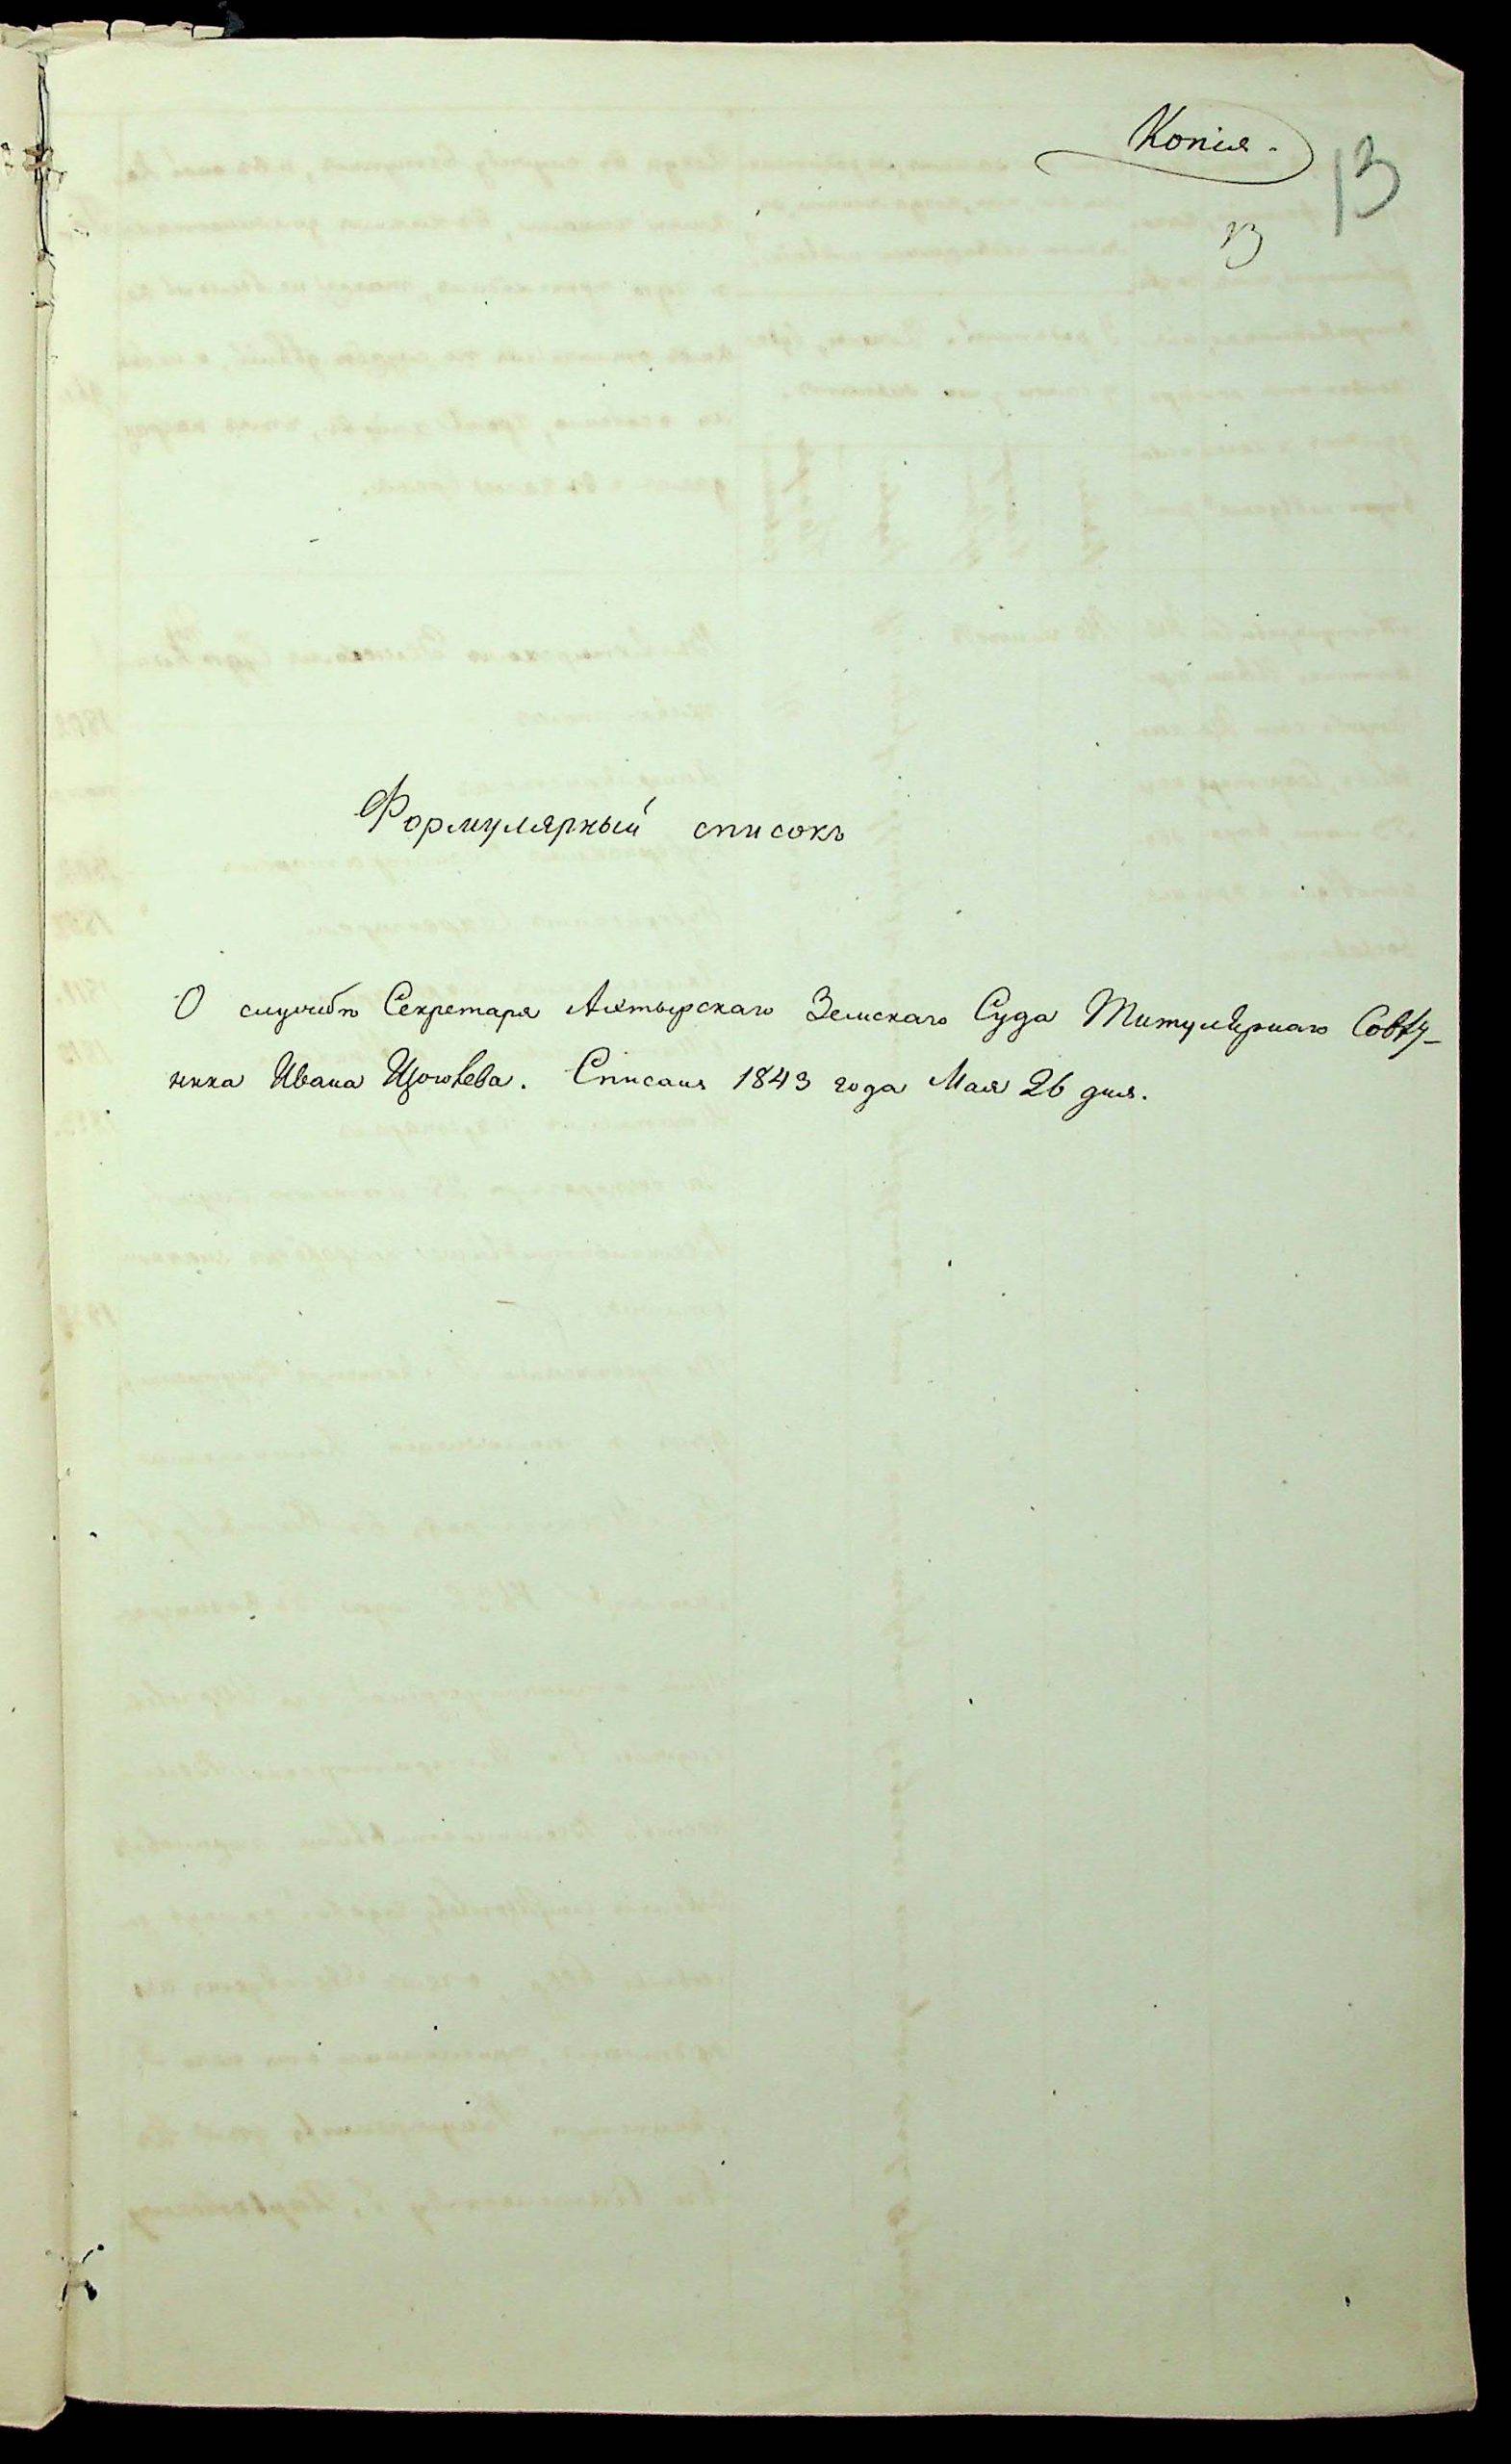 Копія.
13
13
Формулярный списокъ
О службѣ Секретаря Ахтырскаго Земскаго Суда Титулярнаго Совѣт-
ника Ивана Списанъ 1843 года Мая 26 дня.